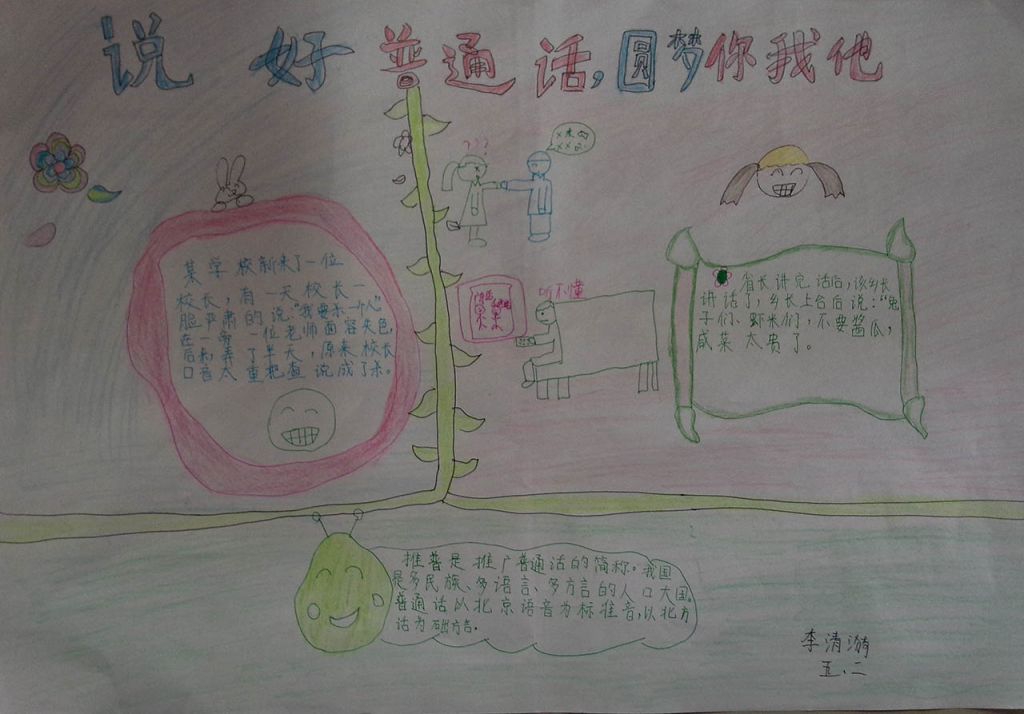 说好普通话,圆梦你我他
某学校新来了一位
校长,有一天校长一
脸严肃的说"我要杀一个人"
在一旁一位老师面容失色,
后来弄了半天,原来校长
口音太重把查说成了杀。
???
听不懂
省长讲完话后,该乡长
讲话了,乡长上台后说:"兔
子们、虾米们,不要酱瓜,
咸菜太贵了。
推普是推广普通话的简称。我国
是多民族、多语言、多方言的人口大国。
普通话以北京语音为标准音,以北方
话为础方言.
李清游
五.二